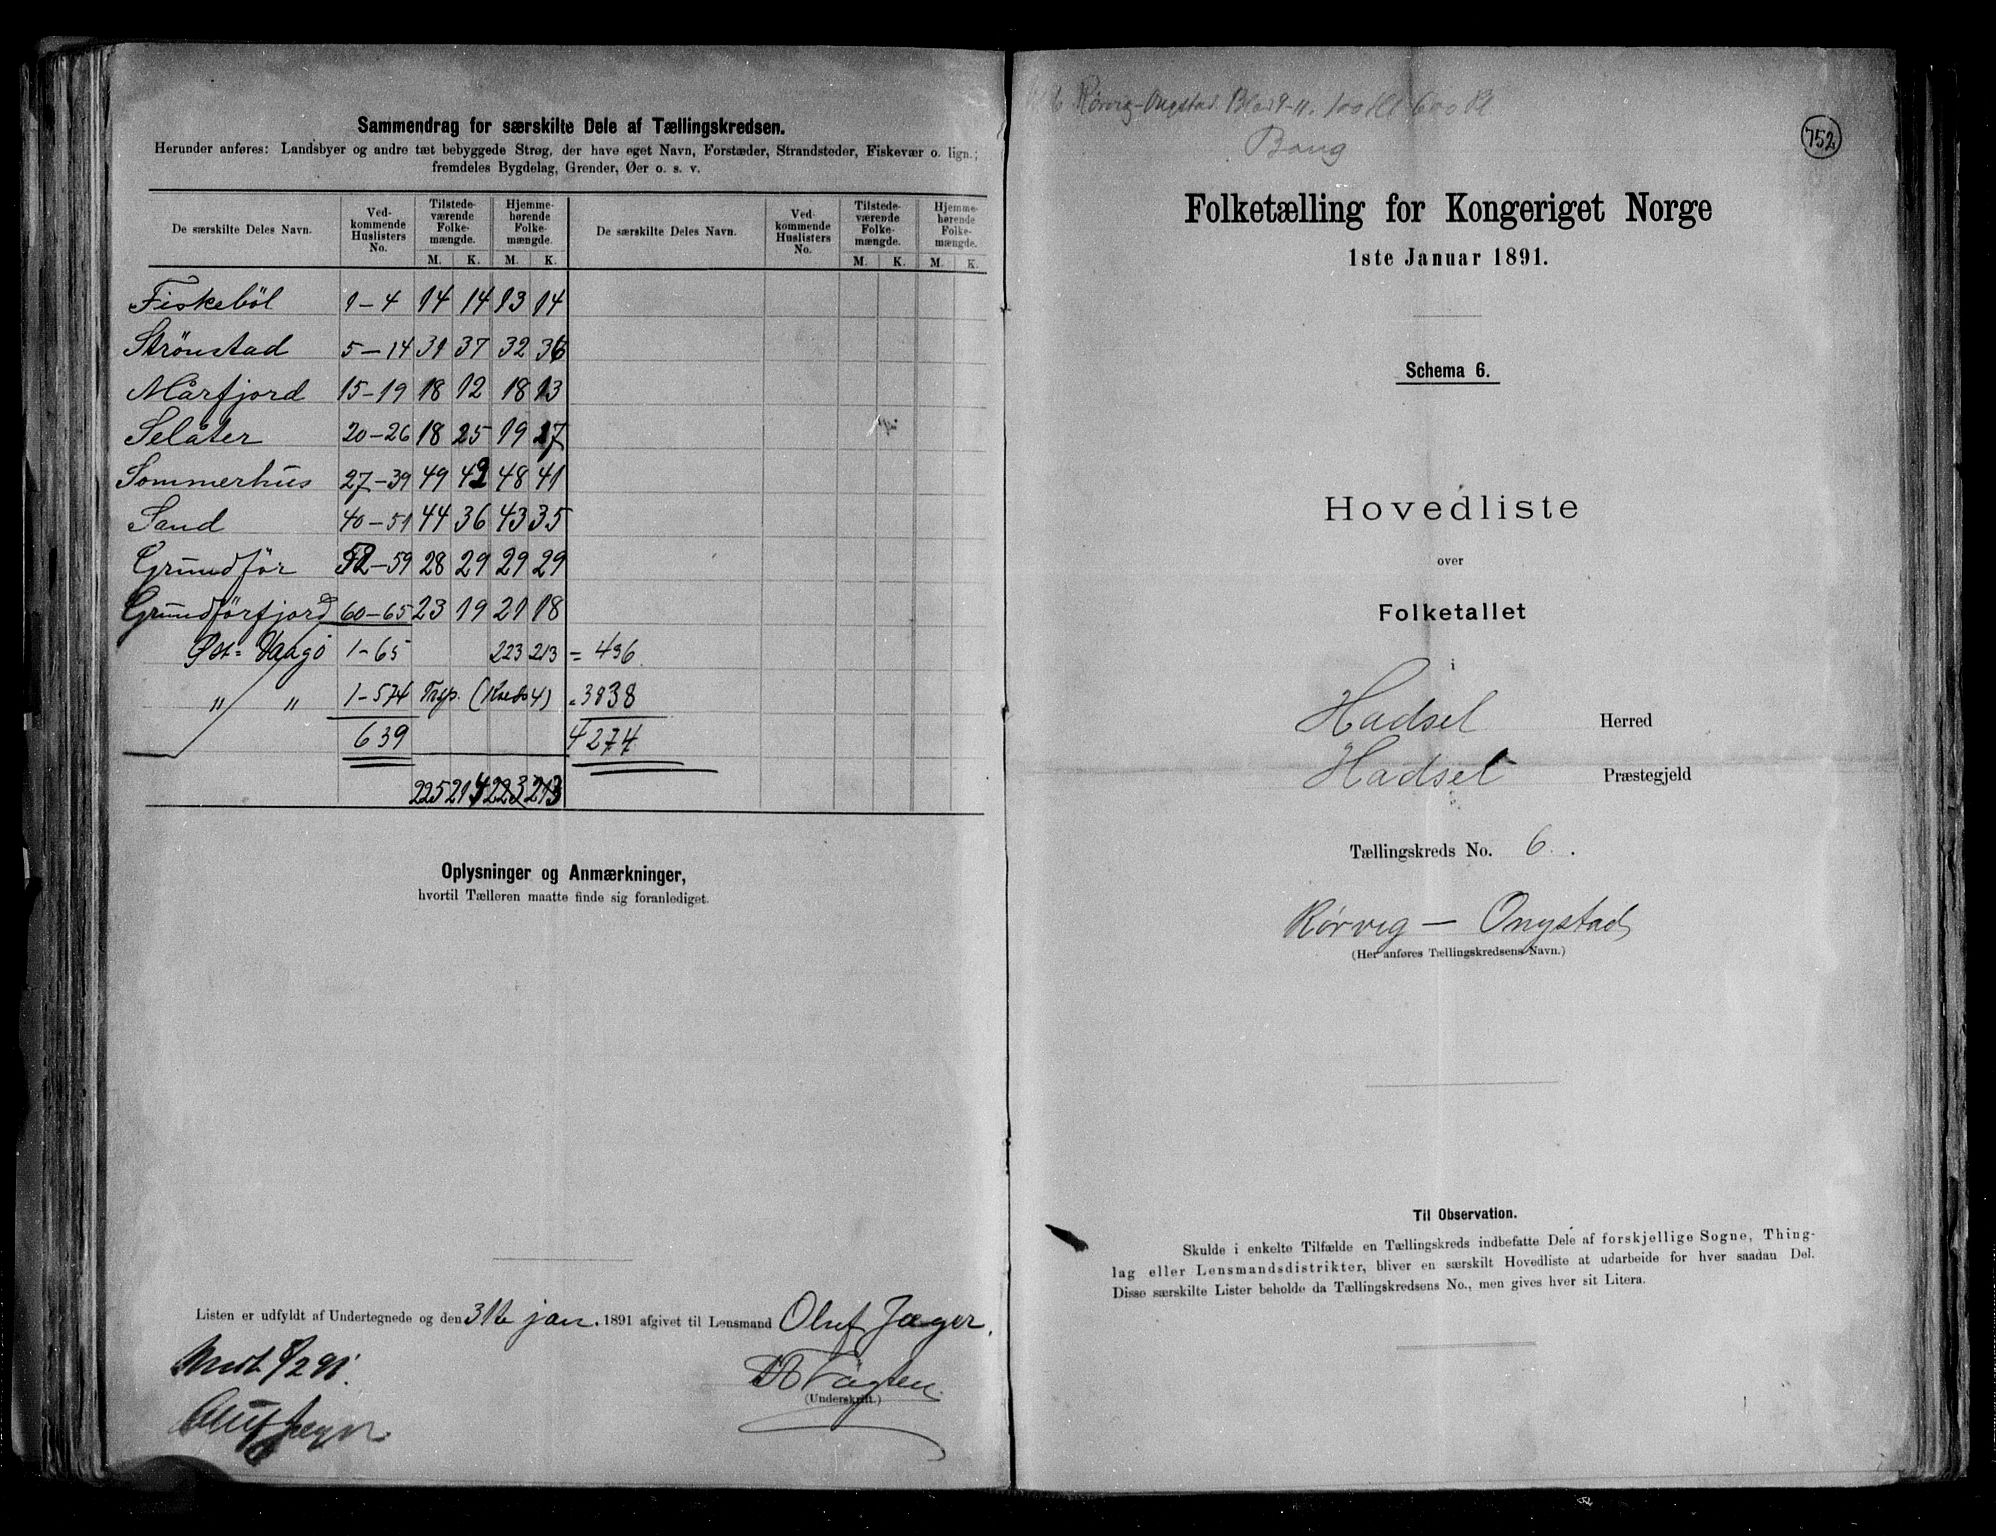 Sammendrag for særskilte Dele af Tællingskredsen.
Herunder anføres: Landsbyer og andre tæt bebyggede Strøg, der have eget Navn, Forstæder, Strandsteder, Fiskevær o. lign.;
fremdeles Bygdelag, Grender, Øer o. s. v.
De særskilte Deles Navn. Ved-kommende Huslisters No. Tilstede-værende Folke-mængde. Hjemme-hørende Folke-mængde. De særskilte Deles Navn. Ved-kommende Huslisters No. Tilstede-værende Folke-mængde. Hjemme-hørende Folke-mængde.
M. K. M. K. M. K. M. K.
Fiskeböl 1-4 14 14 13 14
Strönstad 5-14 31 37 32 36
Mårfjord 15-19 18 12 18 13
Selåter 20-26 18 25 19 27
Sommerhus 27-39 49 42 48 41
Sand 40-51 44 36 43 35
Grundför 52-59 28 29 29 29
Grundförfjord 60-65 23 19 21 18
Øst-Vaagö 1-65 223 213 = 436
" " 1-574 (Kreds 4) = 3838
639 4274
225 214 223 213
Oplysninger og Anmærkninger,
hvortil Tælleren maatte finde sig foranlediget.
Listen er udfyldt af Undertegnede og den 31te jan. 1891 afgivet til Lensmand Oluf Jæger.
8/2 91.
(Underskrift.)
Oluf Jæger
6 Rørvig-Ongstad.
Bang
752
Folketælling for Kongeriget Norge
1ste Januar 1891.
Schema 6.
Hovedliste
over
Folketallet
i
Hadsel Herred
Hadsel Præstegjeld
Tællingskreds No. 6.
Rørvig - Ongstad
(Her anføres Tællingskredsens Navn.)
Til Observation.
Skulde i enkelte Tilfælde en Tællingskreds indbefatte Dele af forskjellige Sogne, Thing-
lag eller Lensmandsdistrikter, bliver en særskilt Hovedliste at udarbeide for hver saadan Del.
Disse særskilte Lister beholde da Tællingskredsens No., men gives hver sit Litera.